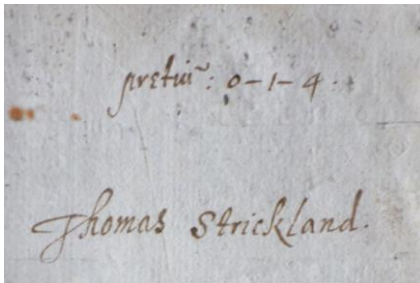 pretiũ: 0-1-4.
Thomas Strickland.